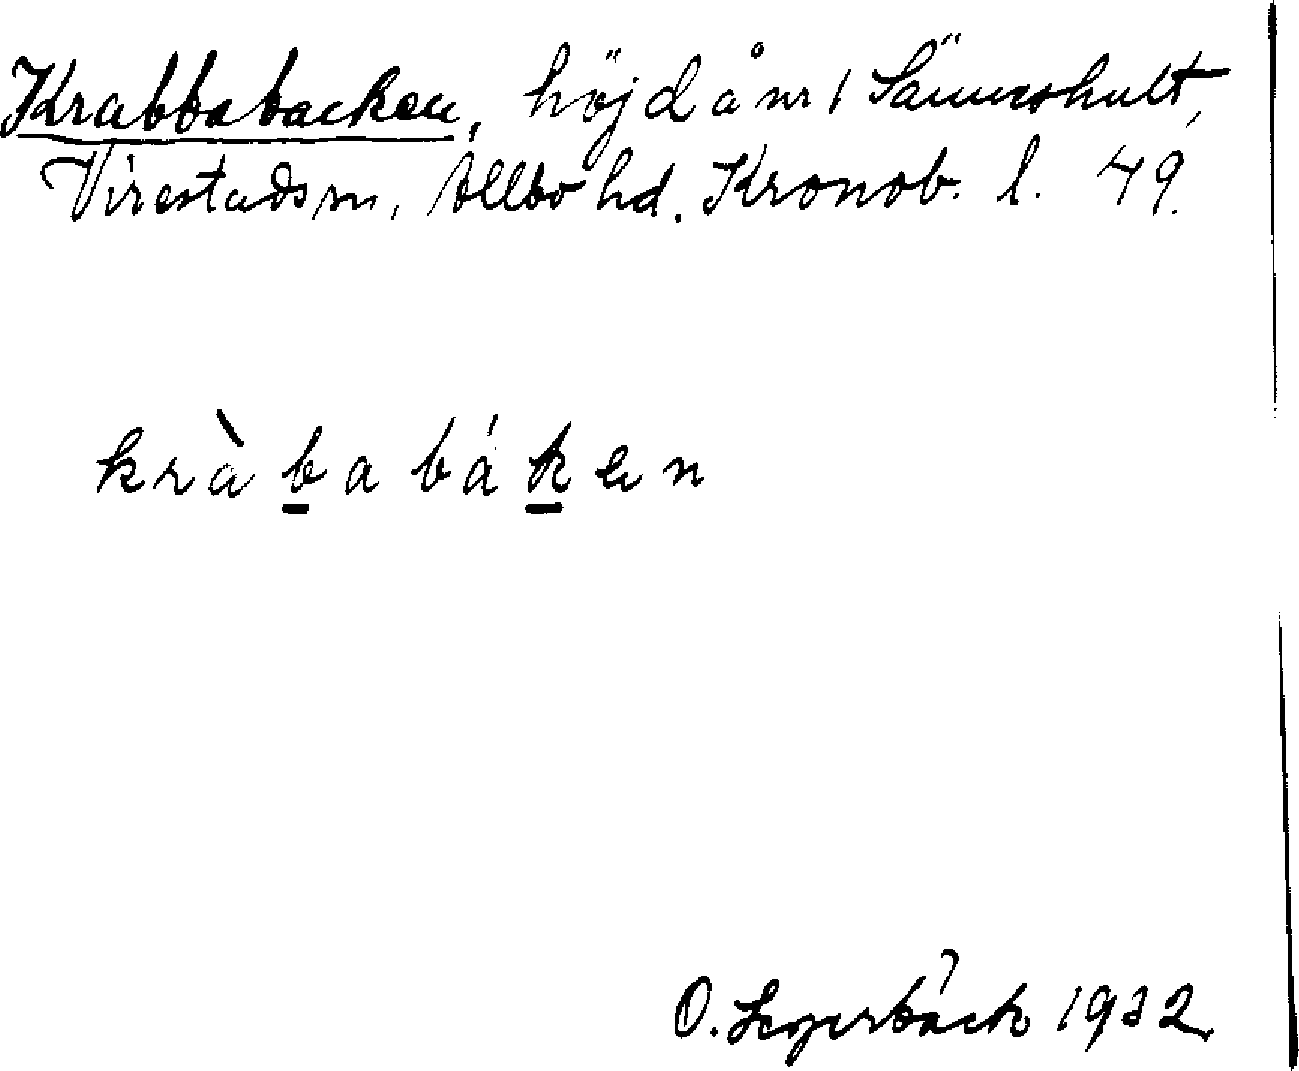 Krabbabacken, höjd å nr 1 Sännershult,
Virestads sn, Allbo hd. Kronob. l. 49.
kràbabáken
O. Segerbäck 1932